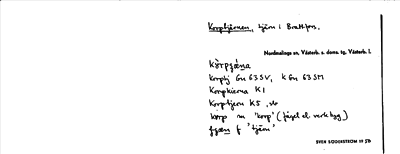 Korptjärnen, tjärn i Bratten.
Nordmalings sn, Västerb. s. doms. tg, Västerb. l.
Korptj Gn 63 SV, k Gn 63 SM
Korpkierna K1
Korptjern K5, sto
korp m 'korp' (fågel el. verkbyg)
f 'tjärn'
SVEN SÖDERSTRÖM 19 50